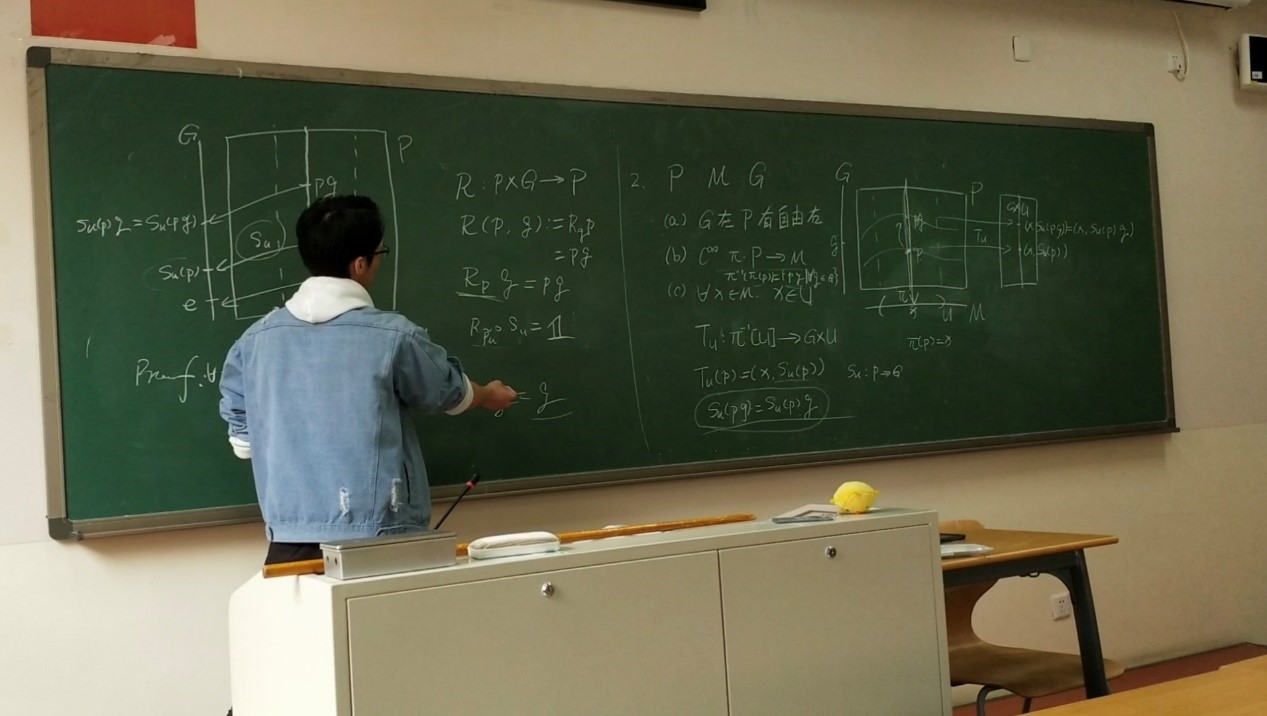 G
P
pg
S_u(p)g = S_u(pg)
S_u
S_u(p)
e
Proof: ∀
R: P×G → P
R(p, g) := R_g p
= pg
R_p g = pg
S_u = 𝟙
= g
2. P M G
(a) G在P有自由右
(b) C^∞ π: P → M
π^{-1}[π(p)] = {pg | ∀g∈G}
(c) ∀x∈M. x∈U
T_u: π^{-1}[U] → G×U
T_u(p) = (x, S_u(p)) S_u: P→G
S_u(pg) = S_u(p)g
G
P
g
pg
p
π
x
U
M
π(p)=x
T_u
G×U
(x, S_u(pg)) = (x, S_u(p)g)
(x, S_u(p))